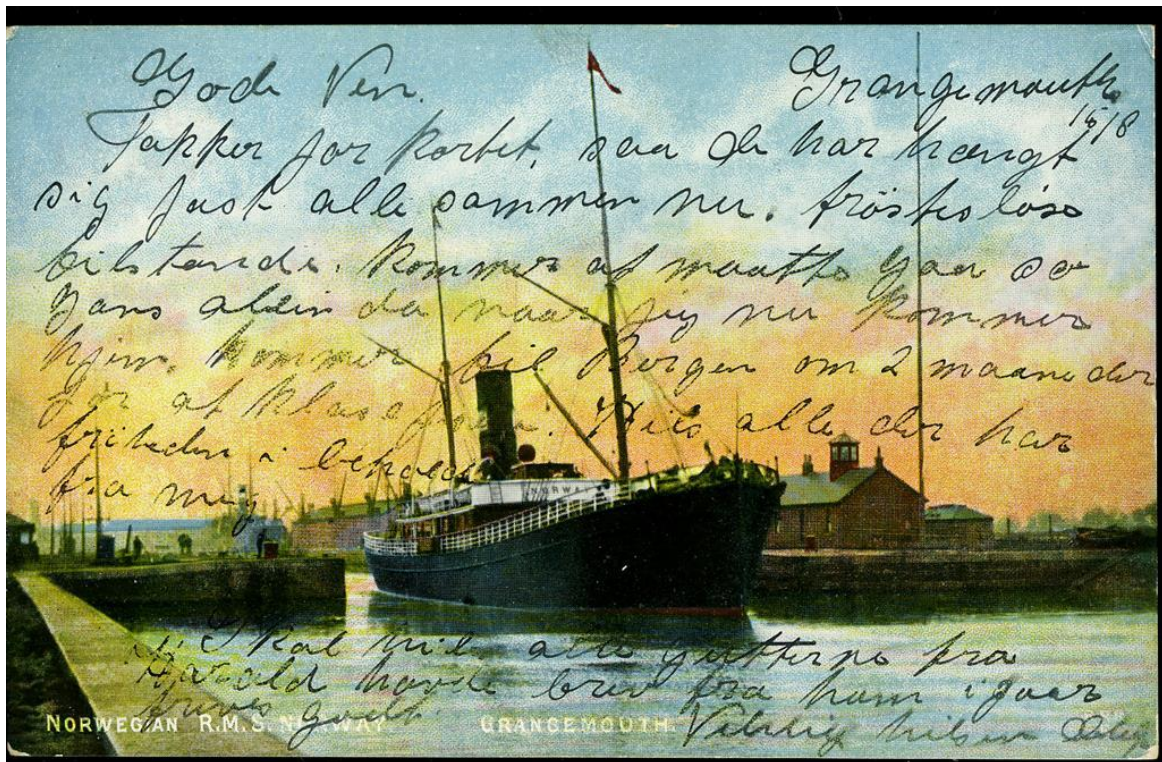 Gode Ven.
Grangemouth
15/8
Takker for kortet, saa de har hængt
sig fast alle sammen nu. trøstesløse
tilstande. kommer at maatte gaa
gans alein da naar jeg nu kommer
hjem, kommer til Bergen om 2 maaneder
for at klase Hils alle der har
friheden i behold
fra mig
NORWAY
Skal hilse alle gutterne fra
Harald havde brev fra ham igaar
godt.
Venlig hilsen
NORWEGIAN R.M.S. NORWAY GRANGEMOUTH.